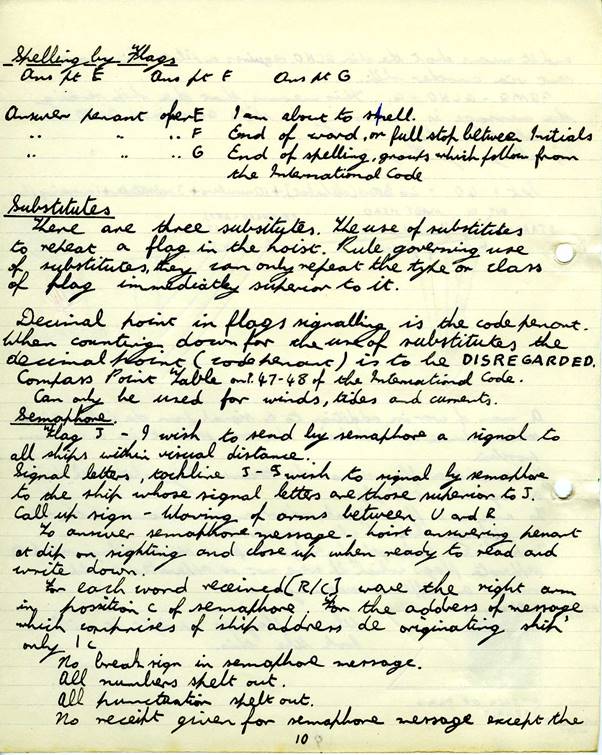 Spelling by Flags
Ans pt E Ans pt F Ans pt G
Answer penant over E I am about to spell.
" " " F End of word, or full stop between Initials
" " " G End of spelling, groups which follow from
the International Code
Substitutes
There are three subsitutes. The use of substitutes
to repeat a flag in the hoist. Rule governing use
of substitutes, they can only repeat the type or class
of flag immediatly superior to it.
Decimal point in flags signalling is the code penant.
When counting down for the use of substitutes the
decimal point (code penant) is to be DISREGARDED.
Compass Point Table on P. 47-48 of the International Code.
Can only be used for winds, tides and currents.
Semaphore.
Flag J - I wish to send by semaphore a signal to
all ships within visual distance.
Signal letters, tackline J - I wish to signal by semaphore
to the ship whose signal letters are those superior to J.
Call up sign - Waving of arms between U and R
To answer semaphore message - hoist answering penant
at dip on sighting and close up when ready to read and
write down.
For each word received [R/C] wave the right arm
in possition C of semaphore. For the address of message
which comprises of 'ship address de originating ship'
only 1 c
No break sign in semaphore message.
All numbers spelt out.
All punctuation spelt out.
No receipt given for semaphore message except the
10